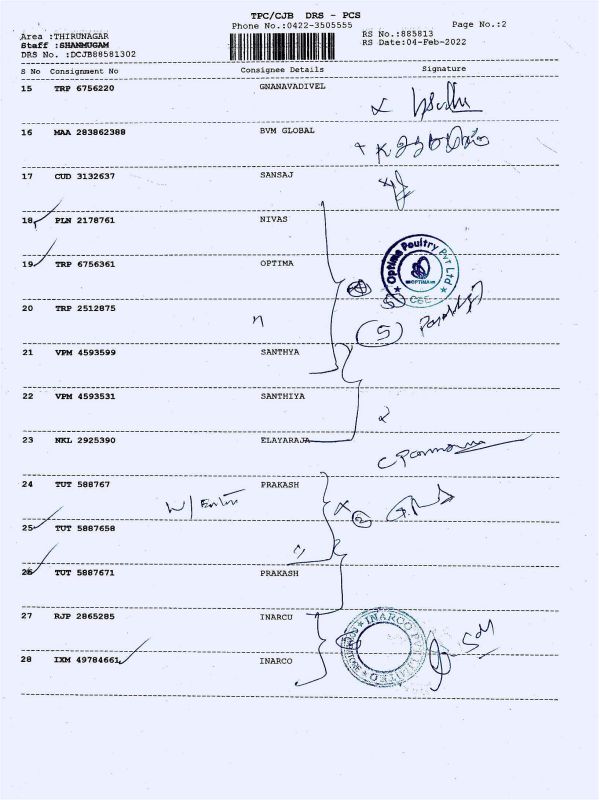 TPC/CJB DRS - PCS
Phone No.:0422-3505555
Page No.:2
Area :THIRUNAGAR
Staff :SHANMUGAM
DRS No. :DCJB88581302
RS No.:885813
RS Date:04-Feb-2022
S No Consignment No Consignee Details Signature
15 TRP 6756220 GNANAVADIVEL
16 MAA 283862388 BVM GLOBAL
17 CUD 3132637 SANSAJ
18 PLN 2178761 NIVAS
19 TRP 6756361 OPTIMA
Optima Poultry Pvt Ltd
OPTIMA
CBE
20 TRP 2512875
5
21 VPM 4593599 SANTHYA
22 VPM 4593531 SANTHIYA
23 NKL 2925390 ELAYARAJA
24 TUT 588767 PRAKASH
2
25 TUT 5887658
26 TUT 5887671 PRAKASH
27 RJP 2865285 INARCU
INARCO
LIMITED
28 IXM 49784661 INARCO